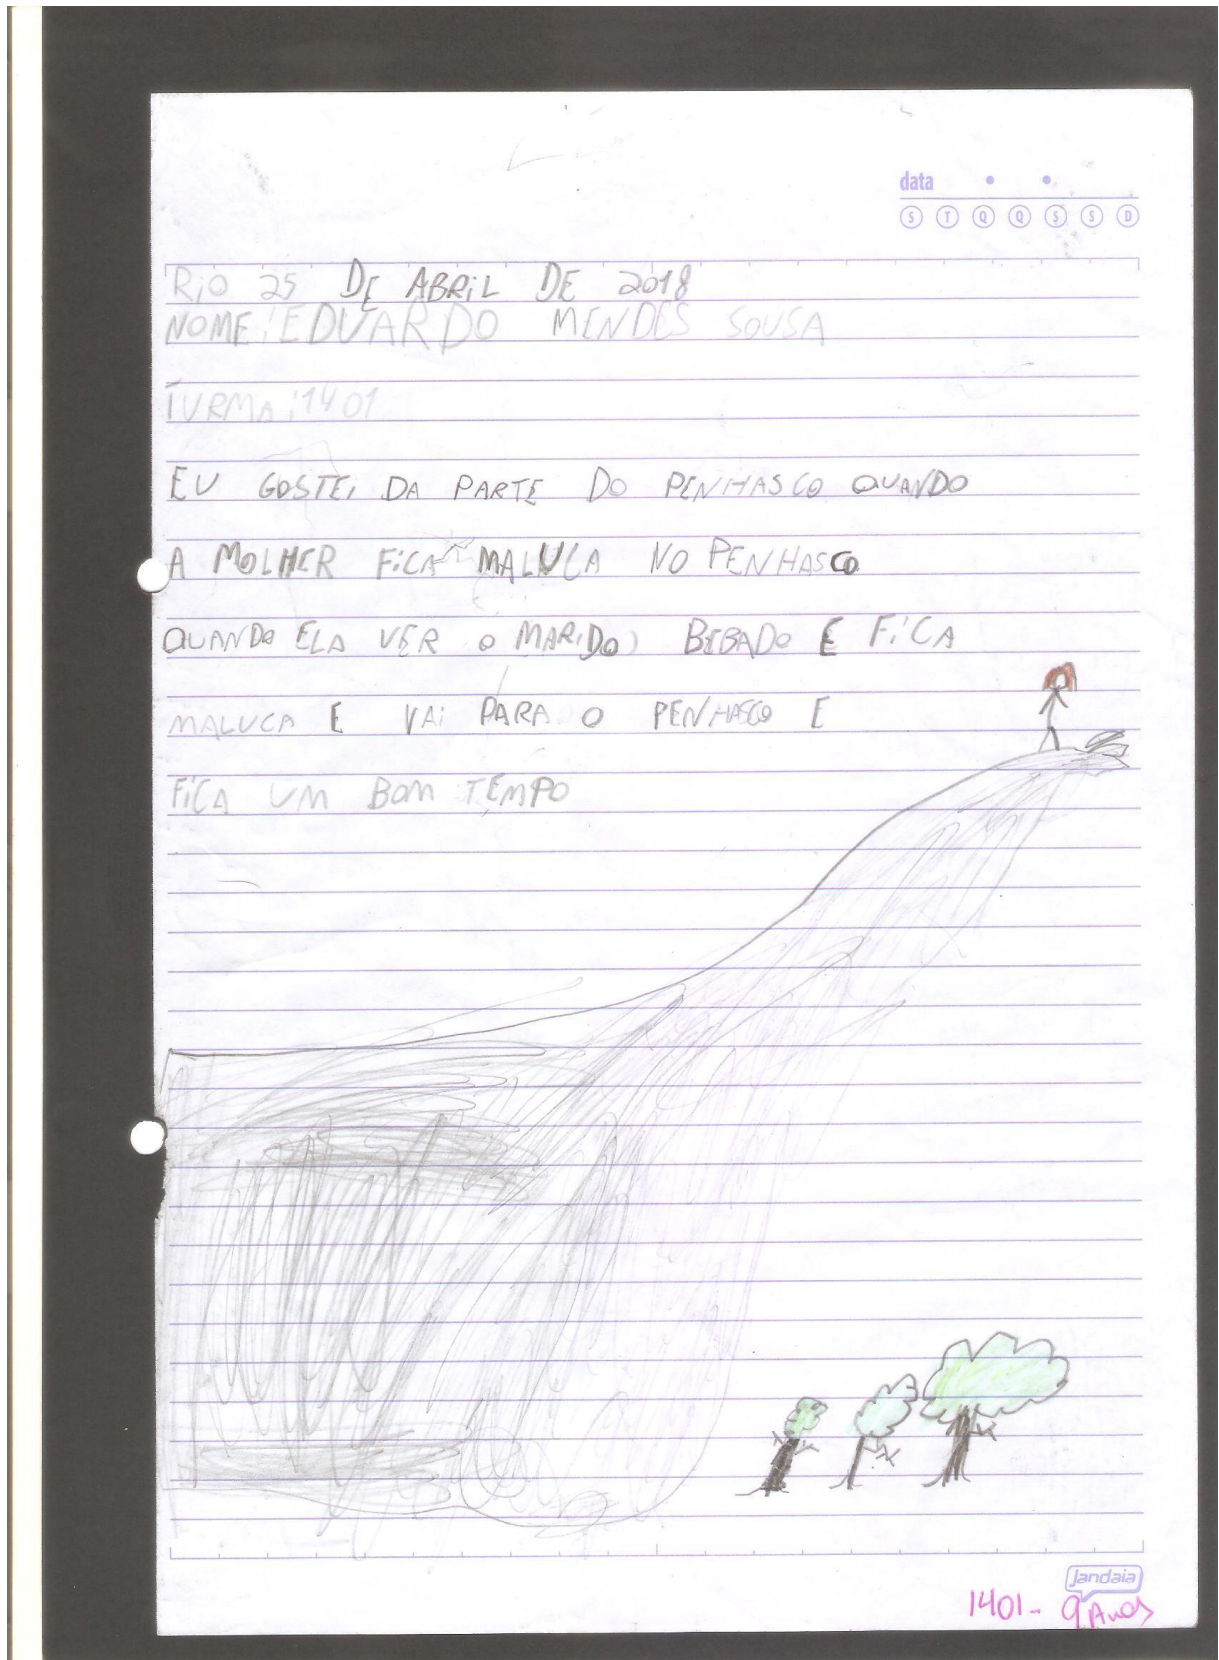 data
S T Q Q S S D
RiO 25 DE ABRiL DE 2018
NOME: EDUARDO MENDES SOUSA
TURMA: 1401
EU GOSTEi DA PARTE DO PENHASCO QUANDO
A MOLHER FiCA MALUCA NO PENHASCO
QUANDO ELA VER O MARiDO BEBADO E FiCA
MALUCA E VAi PARA O PENHASCO E
FiCA UM BOM TEMPO
jandaia
1401 - 9 Anos